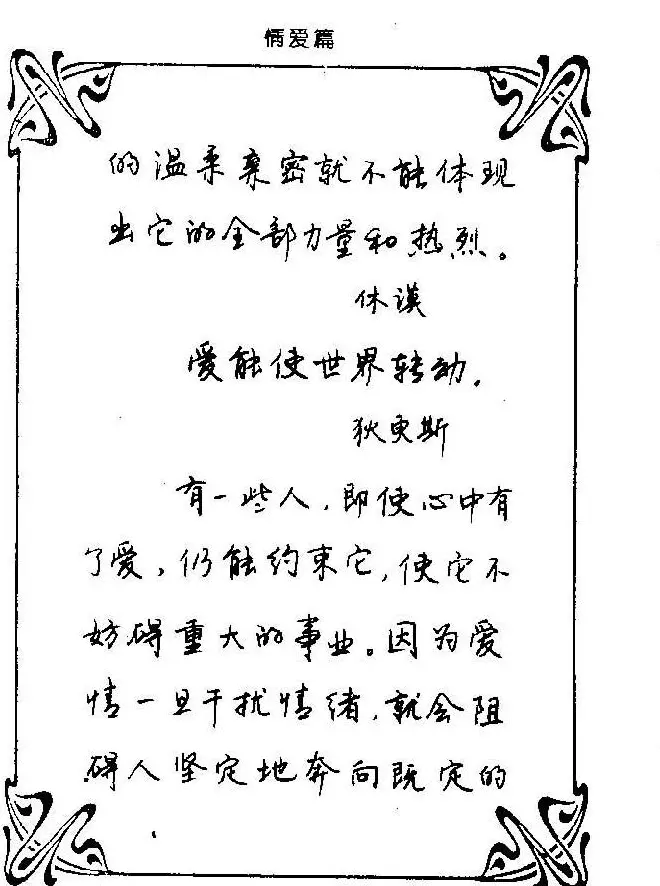 情爱篇
的温柔亲密就不能体现
出它的全部力量和热烈。
休谟
爱能使世界转动。
狄更斯
有一些人,即使心中有
了爱,仍能约束它,使它不
妨碍重大的事业。因为爱
情一旦干扰情绪,就会阻
碍人坚定地奔向既定的